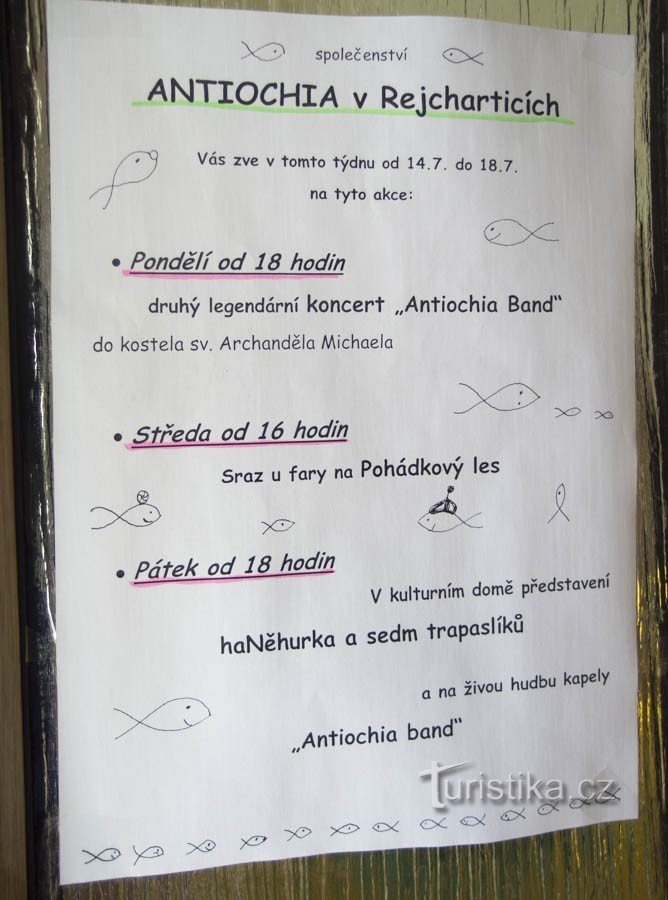 společenství
ANTIOCHIA v Rejcharticích
Vás zve v tomto týdnu od 14.7. do 18.7.
na tyto akce:
• Pondělí od 18 hodin
druhý legendární koncert „Antiochia Band“
do kostela sv. Archanděla Michaela
• Středa od 16 hodin
Sraz u fary na Pohádkový les
• Pátek od 18 hodin
V kulturním domě představení
haNěhurka a sedm trapaslíků
a na živou hudbu kapely
„Antiochia band“
Turistika.cz